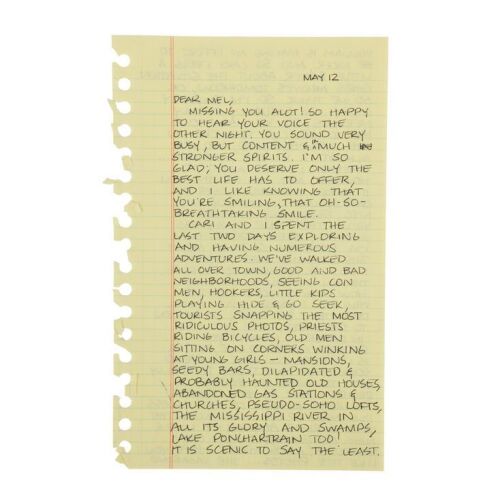 MAY 12
DEAR MEL,
MISSING YOU ALOT! SO HAPPY
TO HEAR YOUR VOICE THE
OTHER NIGHT. YOU SOUND VERY
BUSY, BUT CONTENT & IN MUCH
STRONGER SPIRITS. I'M SO
GLAD; YOU DESERVE ONLY THE
BEST LIFE HAS TO OFFER,
AND I LIKE KNOWING THAT
YOU'RE SMILING, THAT OH-SO-
BREATHTAKING SMILE.
CARI AND I SPENT THE
LAST TWO DAYS EXPLORING
AND HAVING NUMEROUS
ADVENTURES. WE'VE WALKED
ALL OVER TOWN, GOOD AND BAD
NEIGHBORHOODS, SEEING CON
MEN, HOOKERS, LITTLE KIDS
PLAYING HIDE & GO SEEK,
TOURISTS SNAPPING THE MOST
RIDICULOUS PHOTOS, PRIESTS
RIDING BICYCLES, OLD MEN
SITTING ON CORNERS WINKING
AT YOUNG GIRLS - MANSIONS,
SEEDY BARS, DILAPIDATED &
PROBABLY HAUNTED OLD HOUSES,
ABANDONED GAS STATIONS &
CHURCHES, PSEUDO-SOHO LOFTS,
THE MISSISSIPPI RIVER IN
ALL ITS GLORY AND SWAMPS,
LAKE PONCHARTRAIN TOO!
IT IS SCENIC TO SAY THE LEAST.